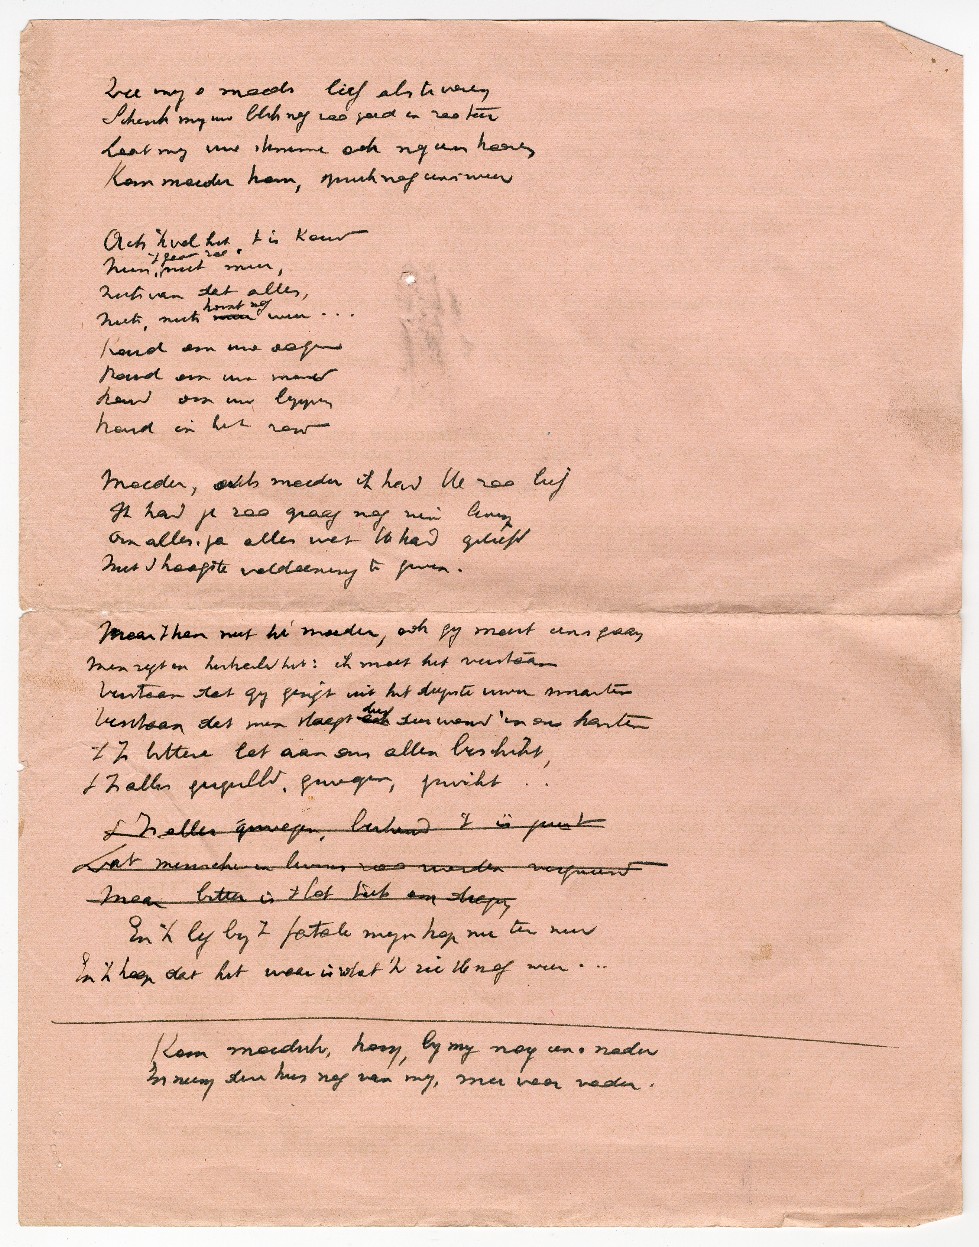 Zie my o moeder lief als te voren
Schenk my uw blik nog zoo goed en zoo teer
Laat my uw stemme ook nog eens hooren
Kom moeder kom, spreek nog eens weer
Och 'k voel het, 't is koud
't gaat zoo
niet meer,
niets van dat alles,
komt nog
Niets, niets weer...
Koud om uw oogen
Koud om uw mond
koud om uw lippen
koud in het rond
Moeder, och moeder ik had U zoo lief
Ik had je zoo graag nog in leven
Om alles. ja alles wat U had geliefd
Met d'hoogste voldoening te geven.
Maar 't kan niet hé moeder, ook gy moest eens gaan
Men zegt en herhaalt het: ik moet het verstaan
Verstaan dat gy gingt uit het diepste uwer smarten
Verstaan dat men slaagt deez wond in ons harten
't Is bittere lot aan ons allen beschikt,
't Is alles gewogen, gewikt ..
't Is alles gewogen, 't is juist
Dat menschen levens zoo worden
Maar bitter is 't lot
En 'k leg by 't fatale myn kop nu ter neer
En 'k hoop dat het waar is dat 'k zie U nog weer...
Kom moeder, kom, by my nog eens nader
En neem deze kus nog van my, mee voor vader.